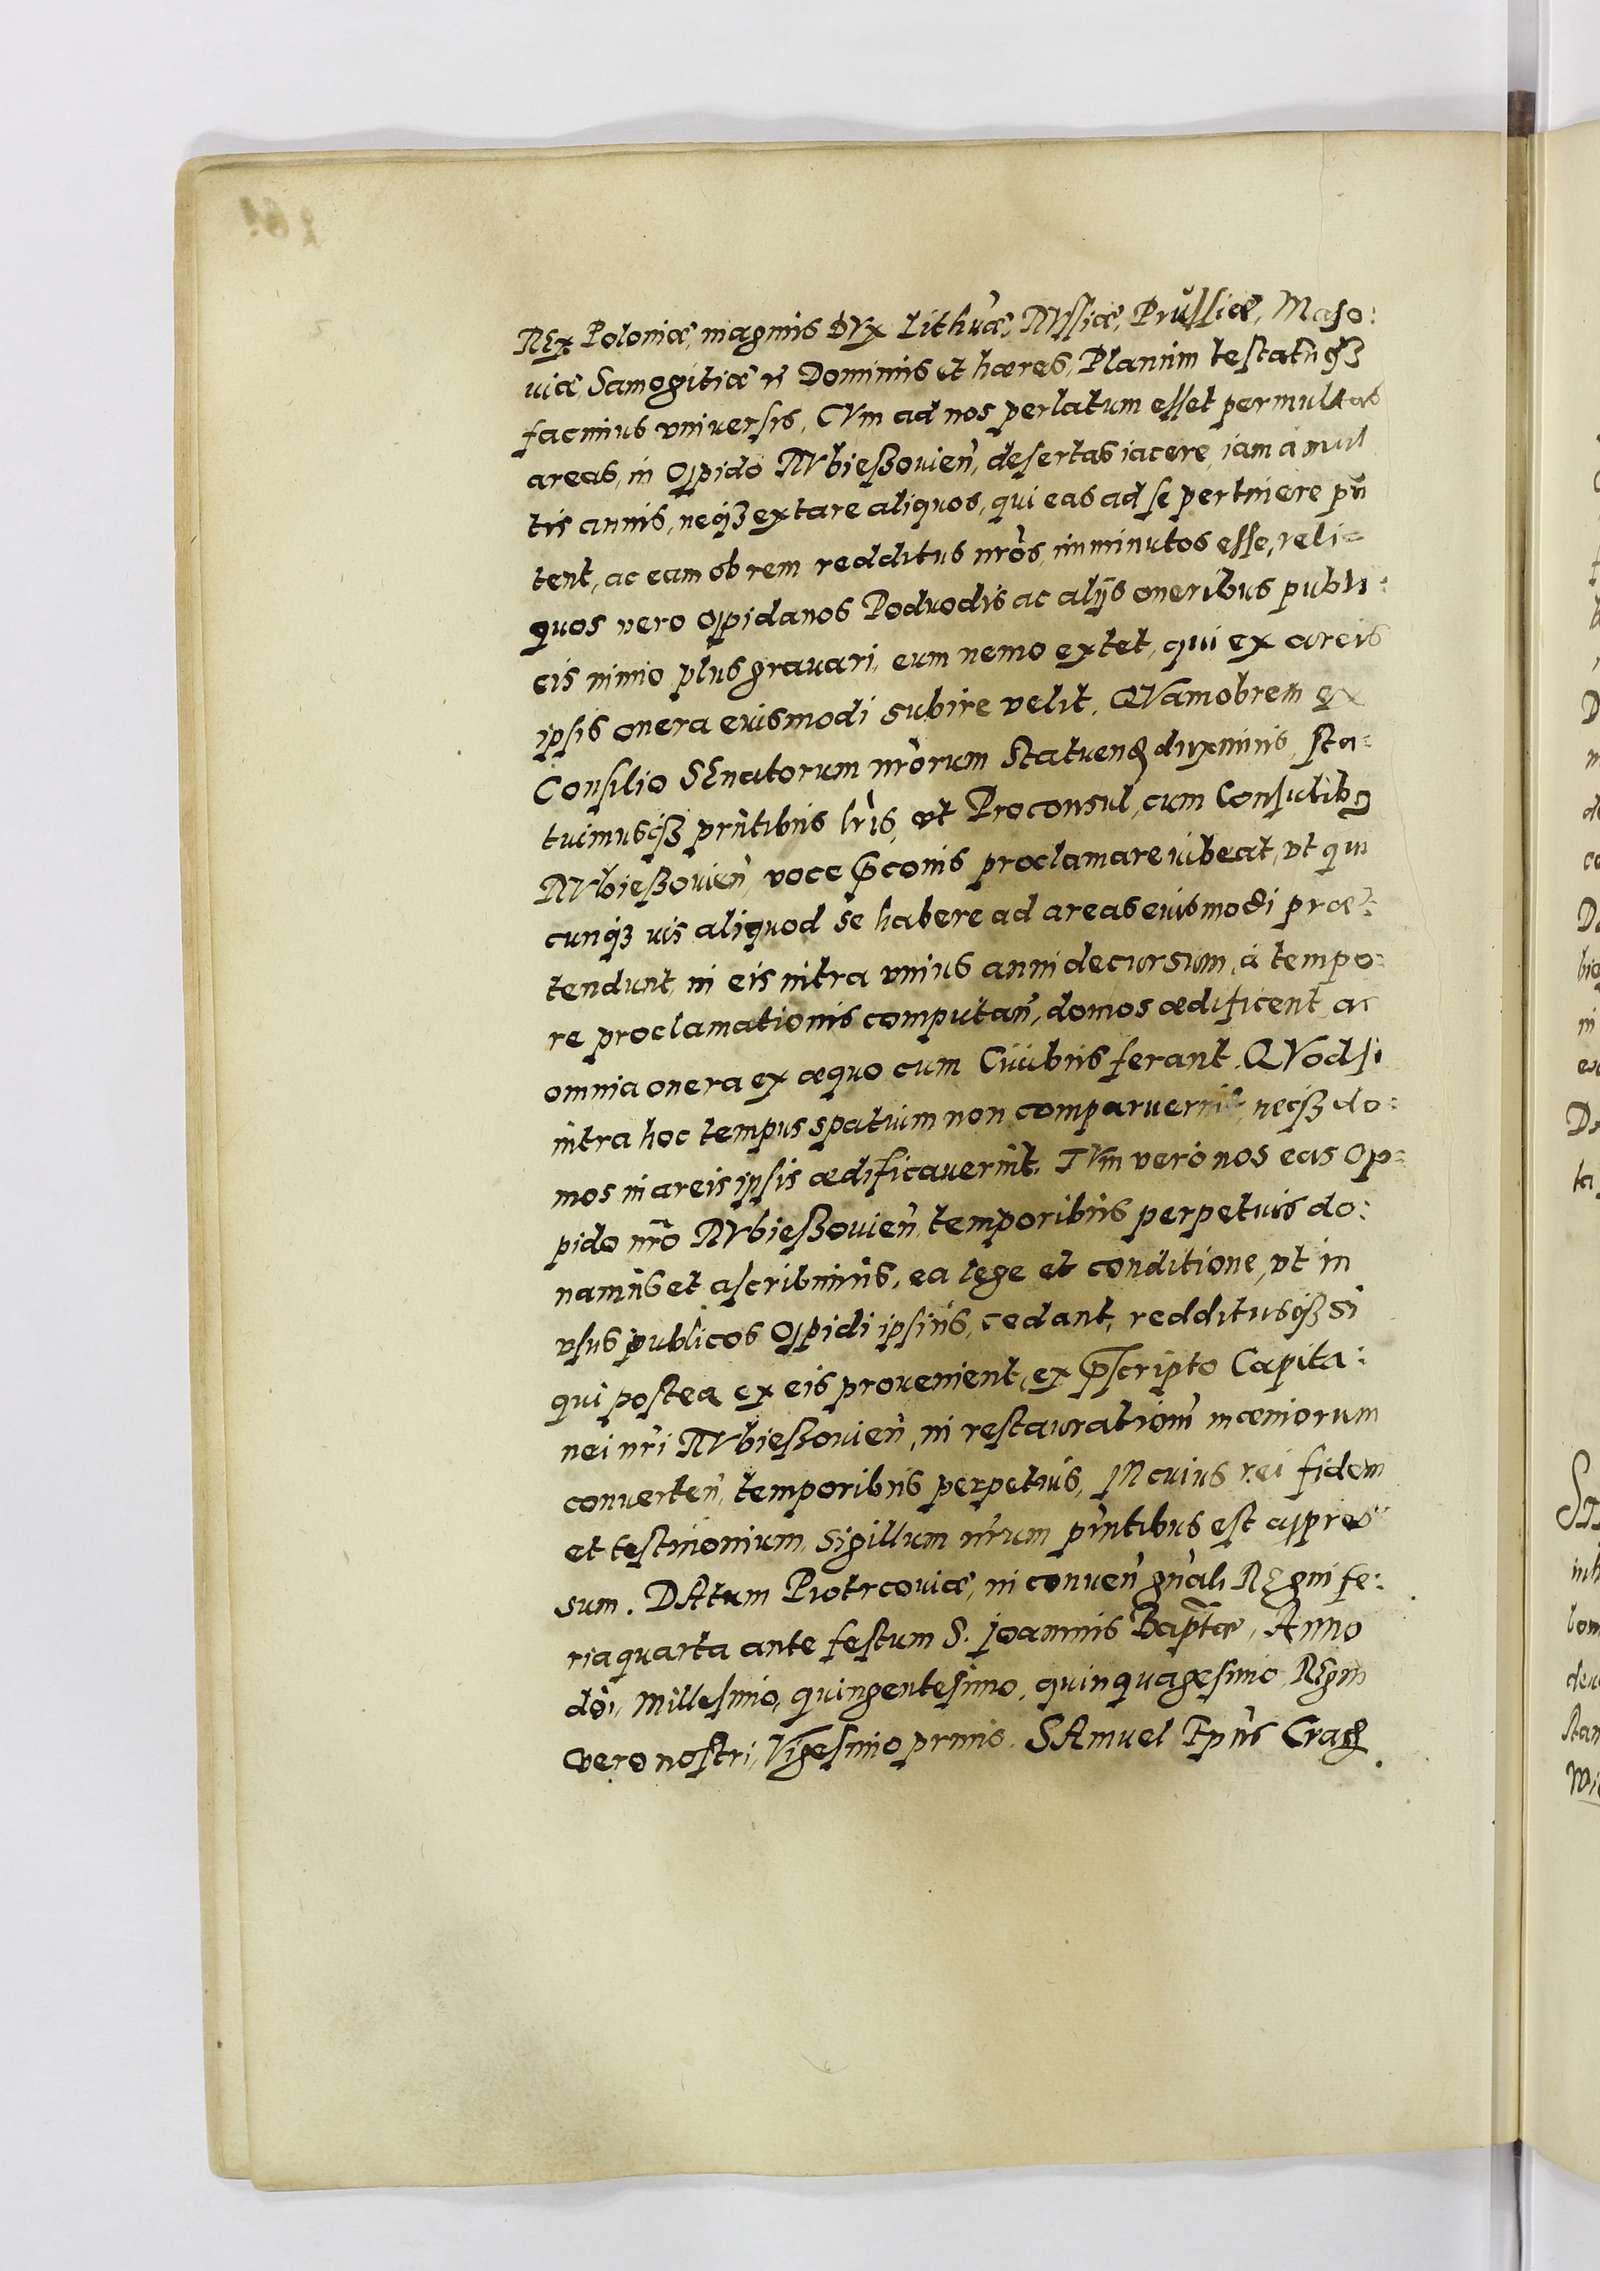 REx Poloniæ, magnus DUx Lithuæ, RUssiæ, Prussiæ, Maso:
uiæ, Samogitiæ &c Dominus et hæres, Planum testatuqз
facimus vniuersis, CUm ad nos perlatum esset permultas
areas, in oppido RUbieszouien̄, desertas iacere, iam à mul
tis annis, neqз extare aliquos, qui eas ad se pertinere pu
tent, ac eam ob rem redditus nr̄os, imminutos esse, reli=
quos vero oppidanos Poduodis ac alijs oneribus publi:
cis nimio plus grauari, cum nemo extet, qui ex areis
ipsis onera euismodi subire velit. QUamobrem ex
Consilio SEnatorum nr̄orum Statuend duximus, sta:
tuimusqз prn̄tibus lr̄is, vt Proconsul, cum Consulibз
RUbieszouien̄, voce p̄conis proclamare iubeat, vt qui
cunqз uis aliquod se habere ad areas euismodi præ:
tendunt, in eis intra vnius anni decursum, à tempo:
re proclamationis computan̄, domos ædificent, ac
omnia onera ex æquo cum Ciuibus ferant. QVodsi
intra hoc tempus spatium non comparuerint, neqз do:
mos in areis ipsis ædificauerint. TUm verò nos eas op=
pido nr̄o RUbieszouien̄, temporibus perpetuis do:
namus et ascribimus, ea lege et conditione, vt in
vsus publicos oppidi ipsius, cedant, redditusqз si
qui postea ex eis prouenient, ex p̄scripto Capita:
nei nr̄i RUbieszouien̄, in restaurationem mœniorum
conuerten̄, temporibus perpetuis, IN cuius rei fidem
et testimonium, sigillum nr̄um prn̄tibus est appres
sum. DAtum Piotrcouiæ, in conuen̄ gn̄ali REgni fe:
ria quarta ante festum S. Joannis Bapt̄æ, Anno
dōi, millesimo, quingentesimo, quinquagesimo, REgni
vero nostri, Vigesimo primo. SAmuel Ep̄us Crac̄